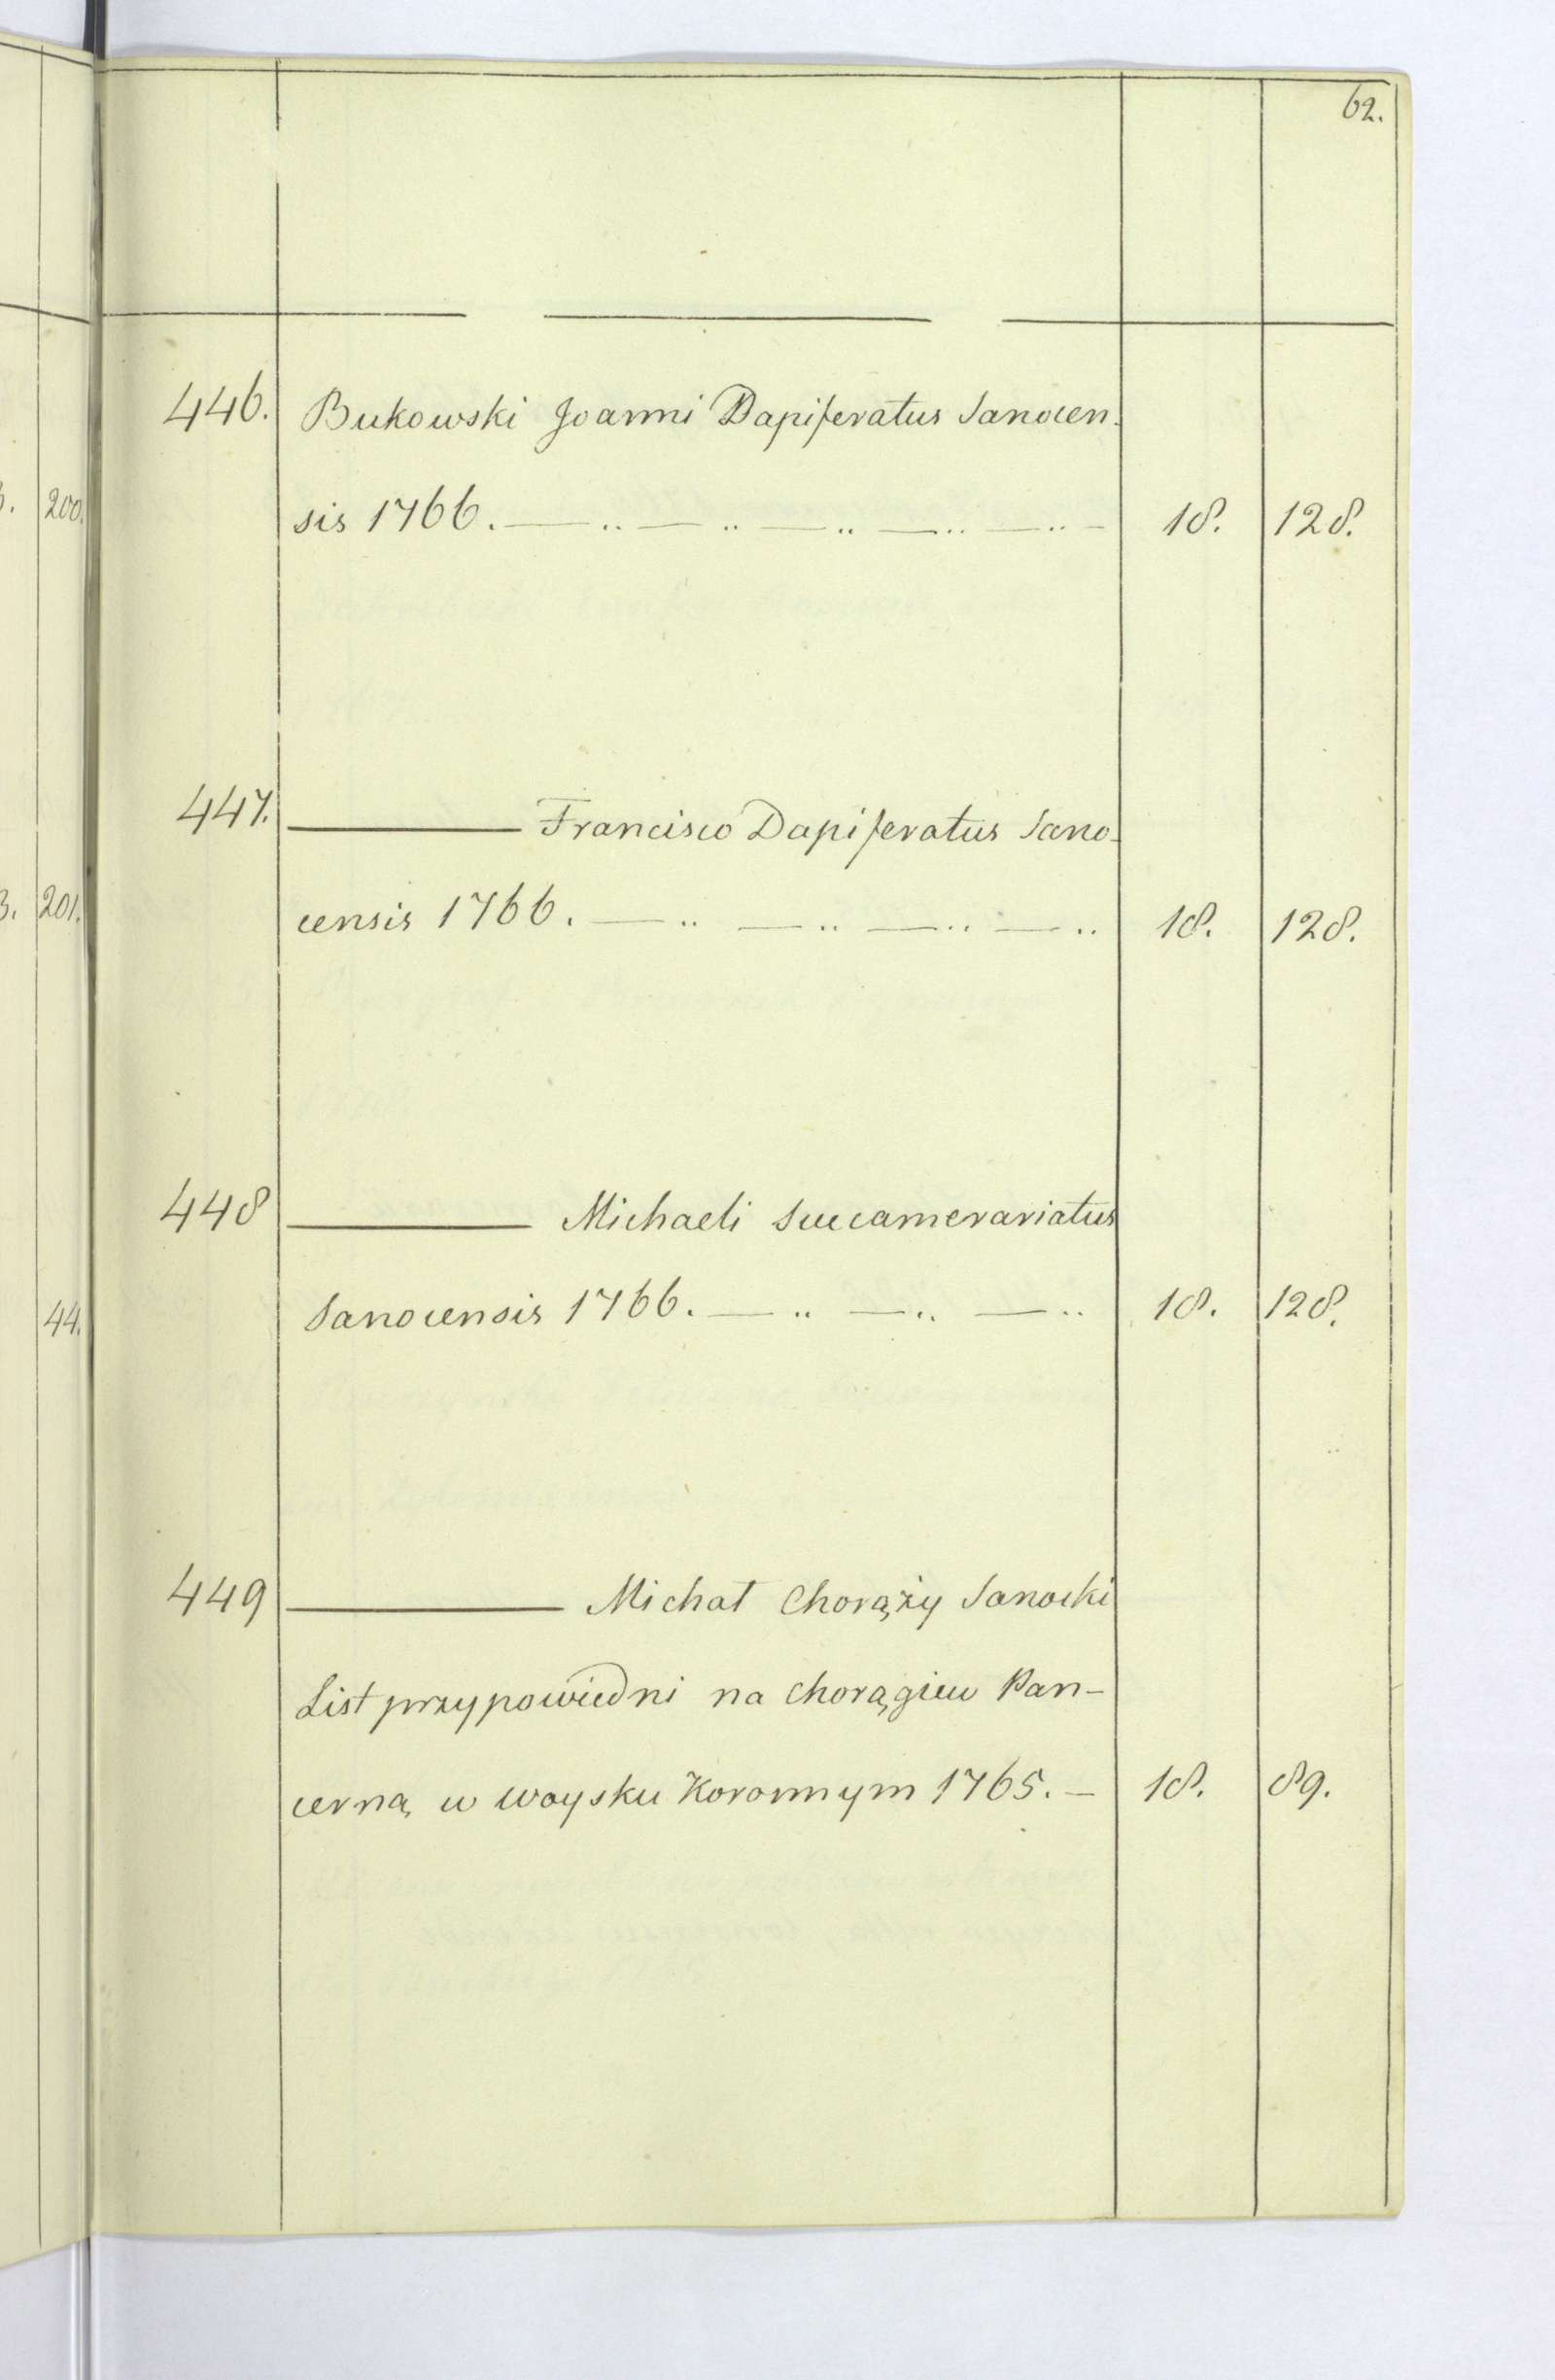 62.
446. Bukowski Joanni Dapiferatus Sanocen-
sis 1766. — .. — .. — .. — .. — .. — 18. 128.
447. ——— Francisco Dapiferatus Sano-
censis 1766. — .. — .. — .. — .. 18. 128.
448 ——— Michaeli Succamerariatus
Sanocensis 1766. — .. — .. — .. 18. 128.
449 ——— Michał Chorąży Sanocki
List przypowiedni na chorągiew Pan-
cerną w woysku Koronnym 1765. — 18. 89.
200.
3. 201.
44.